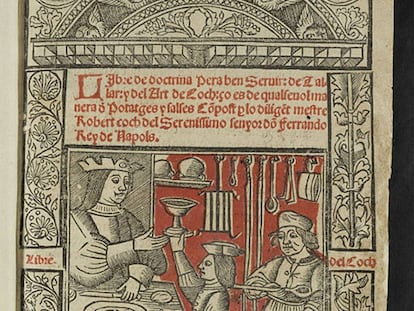 Libre de doctrina Pera ben Seruir: de Tal
lar: y del Art de Coch: ço es de qualseuol ma
nera d̄ Potatges y salses Cōpost p̱ lo diligēt mestre
Robert coch del Serenissimo senyor dō Ferrando
Rey de Napols.
Libre.
del Coch